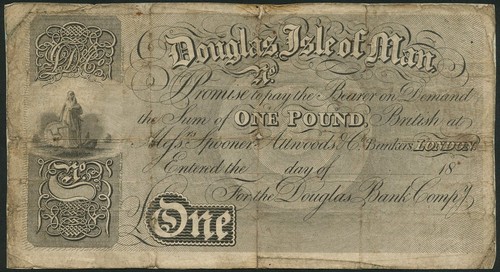 Douglas, Isle of Man,
No.
I Promise to pay the Bearer on Demand
the Sum of ONE POUND, British at
Messrs. Spooner Attwoods & Co. Bankers, LONDON.
Entered the day of 18
For the Douglas Bank Compy.
No.
£ One